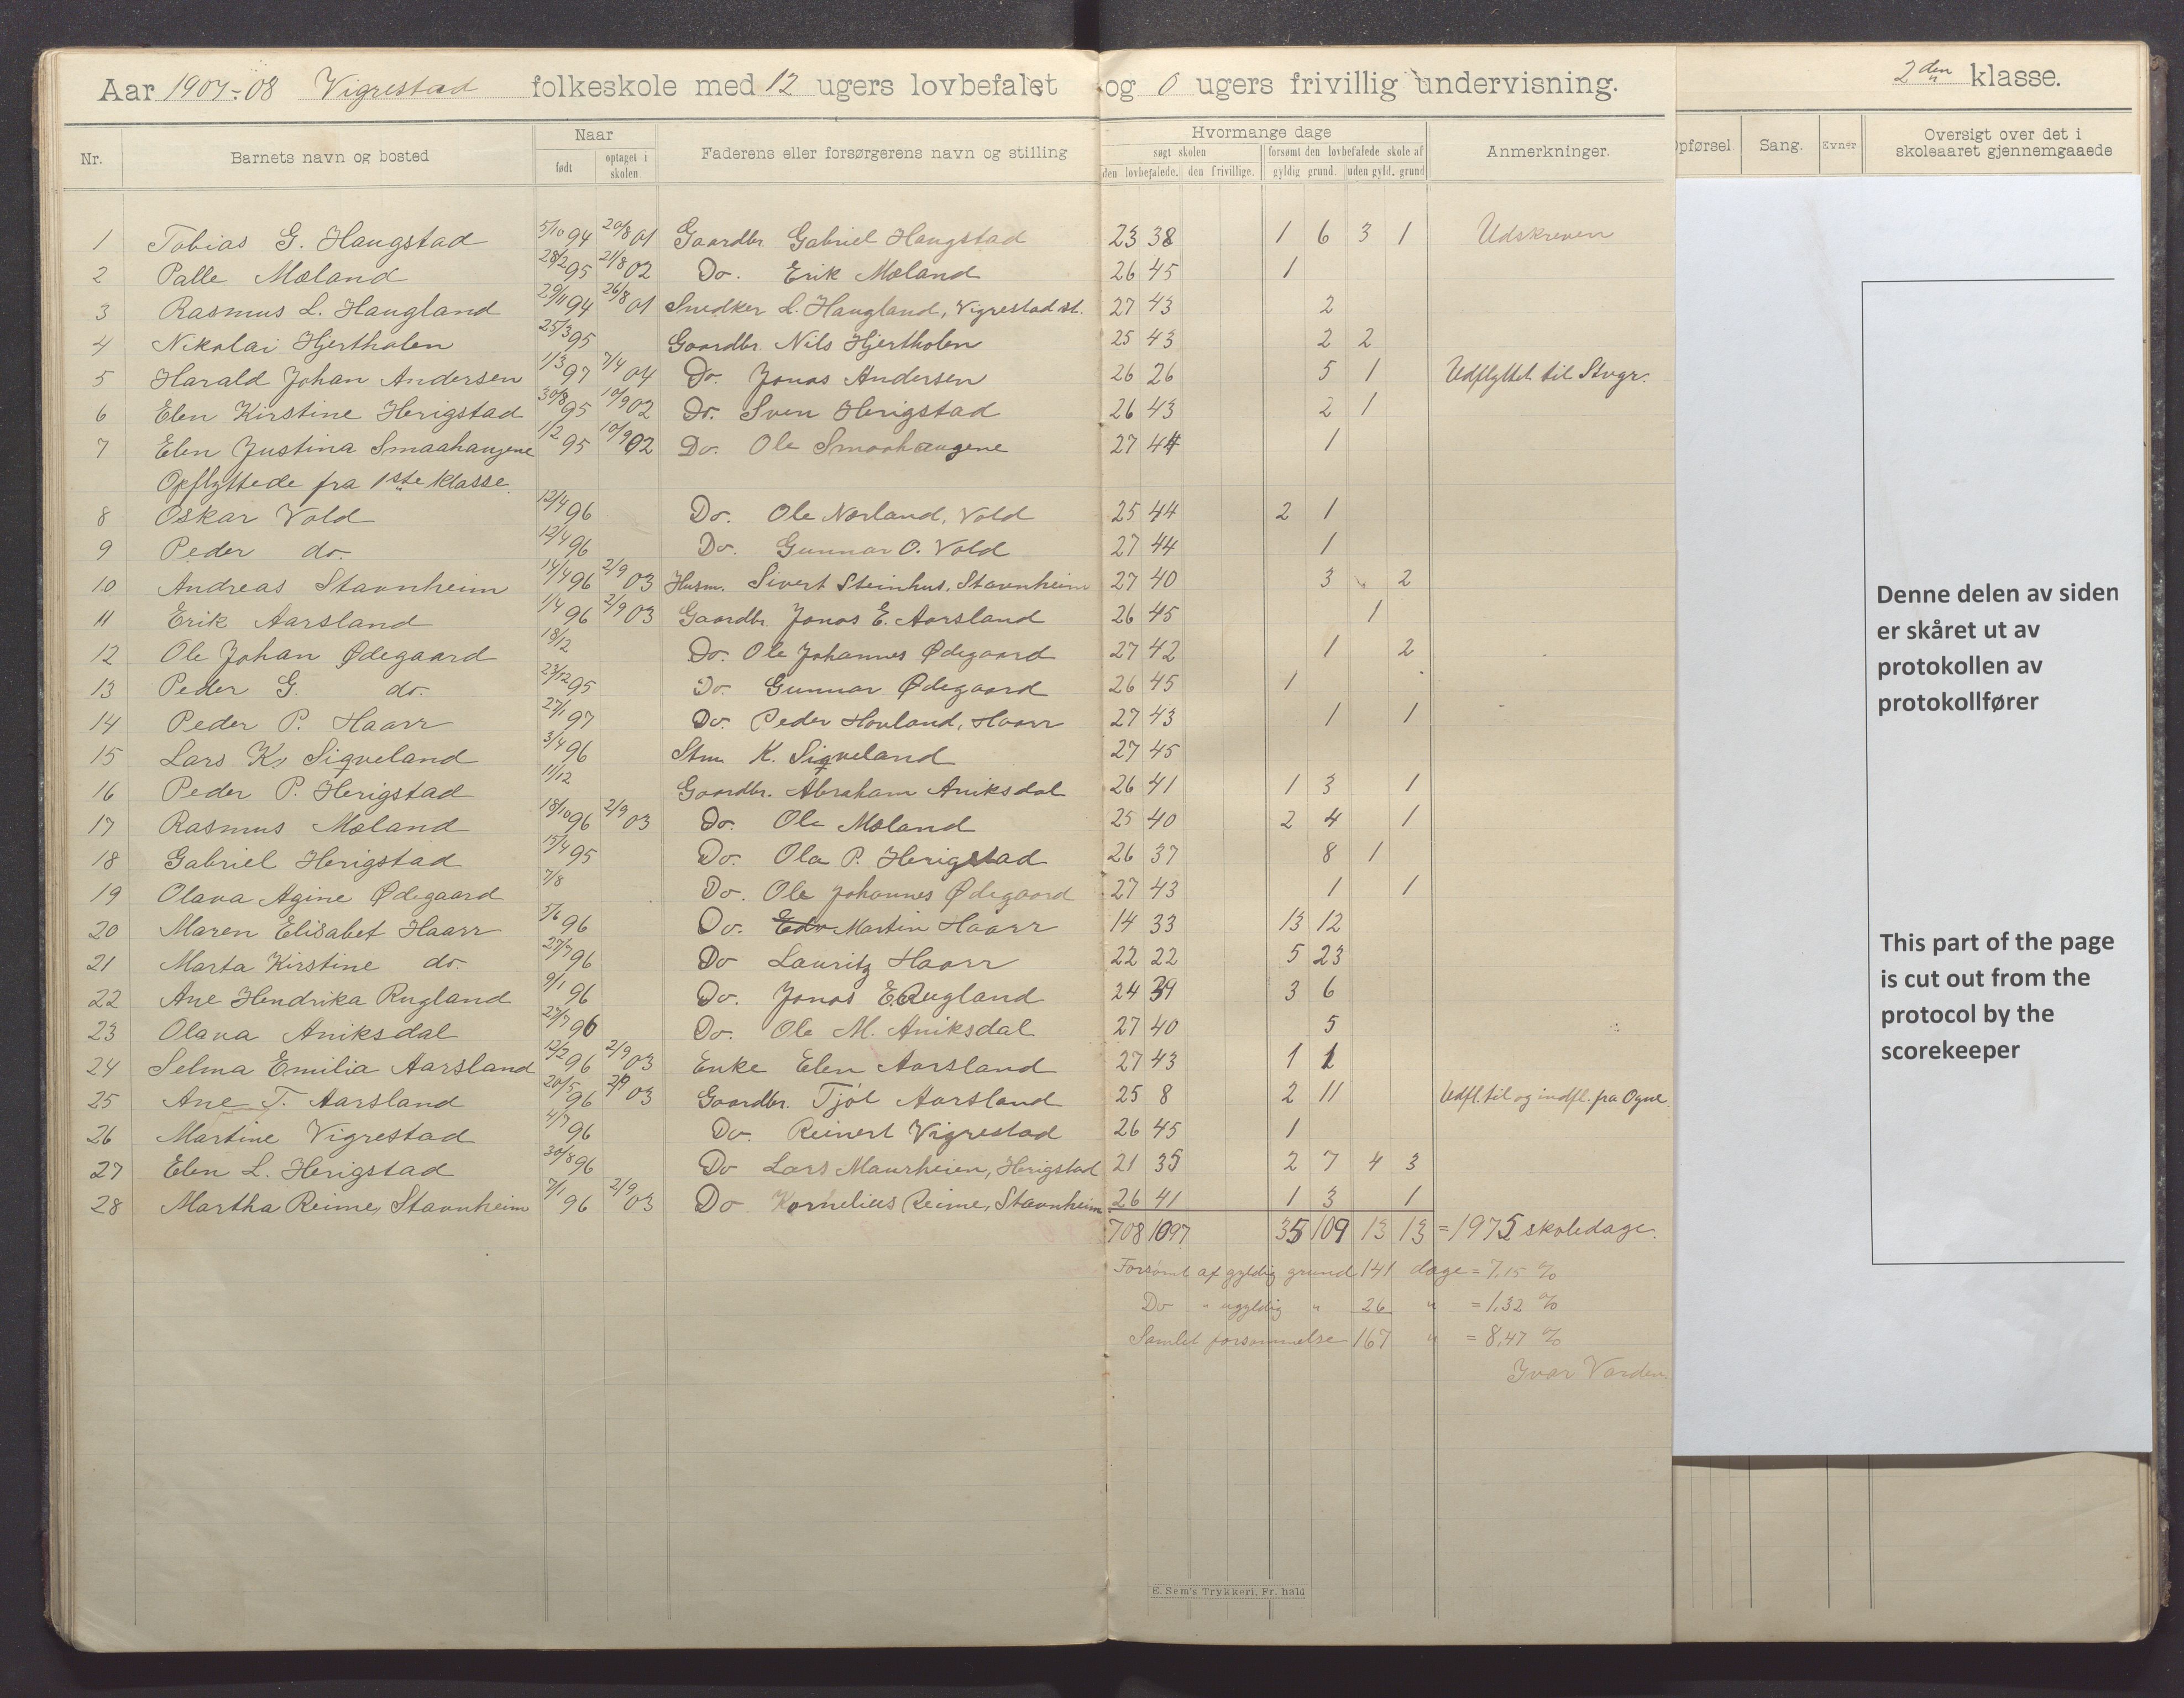 Aar 1907-08 Vigrestad folkeskole med 12 ugers lovbefalet og 0 ugers frivillig undervisning. 2den klasse.
Nr. Barnets navn og bosted Naar født optaget i skolen. Faderens eller forsørgerens navn og stilling Hvormange dage søgt skolen den lovbefalede. den frivillige. forsømt den lovbefalede skole af gyldig grund. uden gyld. grund Anmerkninger. Opførsel Sang. Evner Oversigt over det i skoleaaret gjennemgaaede
1 Tobias G. Haugstad 5/10 94 20/8 01 Gaardbr Gabriel Haugstad 23 38 1 6 3 1 Udskreven
2 Palle Mæland 28/2 95 21/8 02 Do. Erik Mæland 26 45 1
3 Rasmus L. Haugland 29/11 94 26/8 01 Snedker L. Haugland, Vigrestad st. 27 43 2
4 Nikolai Hjertholen 25/3 95 Gaardbr. Nils Hjertholen 25 43 2 2
5 Harald Johan Andersen 1/3 97 7/4 04 Do. Jonas Andersen 26 26 5 1 Udflyttet til Stvgr.
6 Elen Kirstine Herigstad 30/8 95 10/9 02 Do. Sven Herigstad 26 43 2 1
7 Elen Justina Smaahaugene 1/2 95 10/9 02 Do. Ole Smaahaugene 27 44 1
Opflyttede fra 1ste klasse.
8 Oskar Vold 12/4 96 Do. Ole Norland, Vold 25 44 2 1
9 Peder do. 12/4 96 Do. Gunnar O. Vold 27 44 1
10 Andreas Stavnheim 14/4 96 2/9 03 Husm. Sivert Steinhus, Stavnheim 27 40 3 2
11 Erik Aarsland 1/4 96 2/9 03 Gaardbr. Jonas E. Aarsland 26 45 1
12 Ole Johan Ødegaard 18/12 Do. Ole Johannes Ødegaard 27 42 1 2
13 Peder G. do. 23/12 95 Do. Gunnar Ødegaard 26 45 1
14 Peder P. Haarr 27/1 97 Do. Peder Hovland, Haarr 27 43 1 1
15 Lars K. Siqveland 3/4 96 Stm. K. Siqveland 27 45
16 Peder P. Herigstad 11/12 Gaardbr. Abraham Aniksdal 26 41 1 3 1
17 Rasmus Mæland 18/10 96 2/9 03 Do. Ole Mæland 25 40 2 4 1
18 Gabriel Herigstad 15/4 95 Do. Ola P. Herigstad 26 37 8 1
19 Olava Agine Ødegaard 7/8 Do. Ole Johannes Ødegaard 27 43 1 1
20 Maren Elisabet Haarr 5/6 96 Do. Edv Martin Haarr 14 33 13 12
21 Marta Kirstine do. 27/7 96 Do Lauritz Haarr 22 22 5 23
22 Ane Hendrika Rugland 9/1 96 Do. Jonas E. Rugland 24 39 3 6
23 Olava Aniksdal 27/7 96 Do. Ole M. Aniksdal 27 40 5
24 Selma Emilia Aarsland 12/2 96 2/9 03 Enke Elen Aarsland 27 43 1 1
25 Ane T. Aarsland 20/5 96 2/9 03 Gaardbr. Tjøl Aarsland 25 8 2 11 Udfl. til og indfl. fra Ogne.
26 Martine Vigrestad 4/7 96 Do. Reinert Vigrestad 26 45 1
27 Elen L. Herigstad 30/8 96 Do Lars Maurheien, Herigstad 21 35 2 7 4 3
28 Martha Reime, Stavnheim 7/1 96 2/9 03 Do. Kornelius Reime, Stavnheim 26 41 1 3 1
708 1097 35 109 13 13 = 1975 skoledage.
Forsømt af gyldig grund 141 dage = 7,15 %
Do " ugyldig " 26 " = 1,32 %
Samlet forsømmelse 167 " = 8,47 %
Ivar Varden.
E. Sem's Trykkeri, Fr. hald
Denne delen av siden
er skåret ut av
protokollen av
protokollfører
This part of the page
is cut out from the
protocol by the
scorekeeper